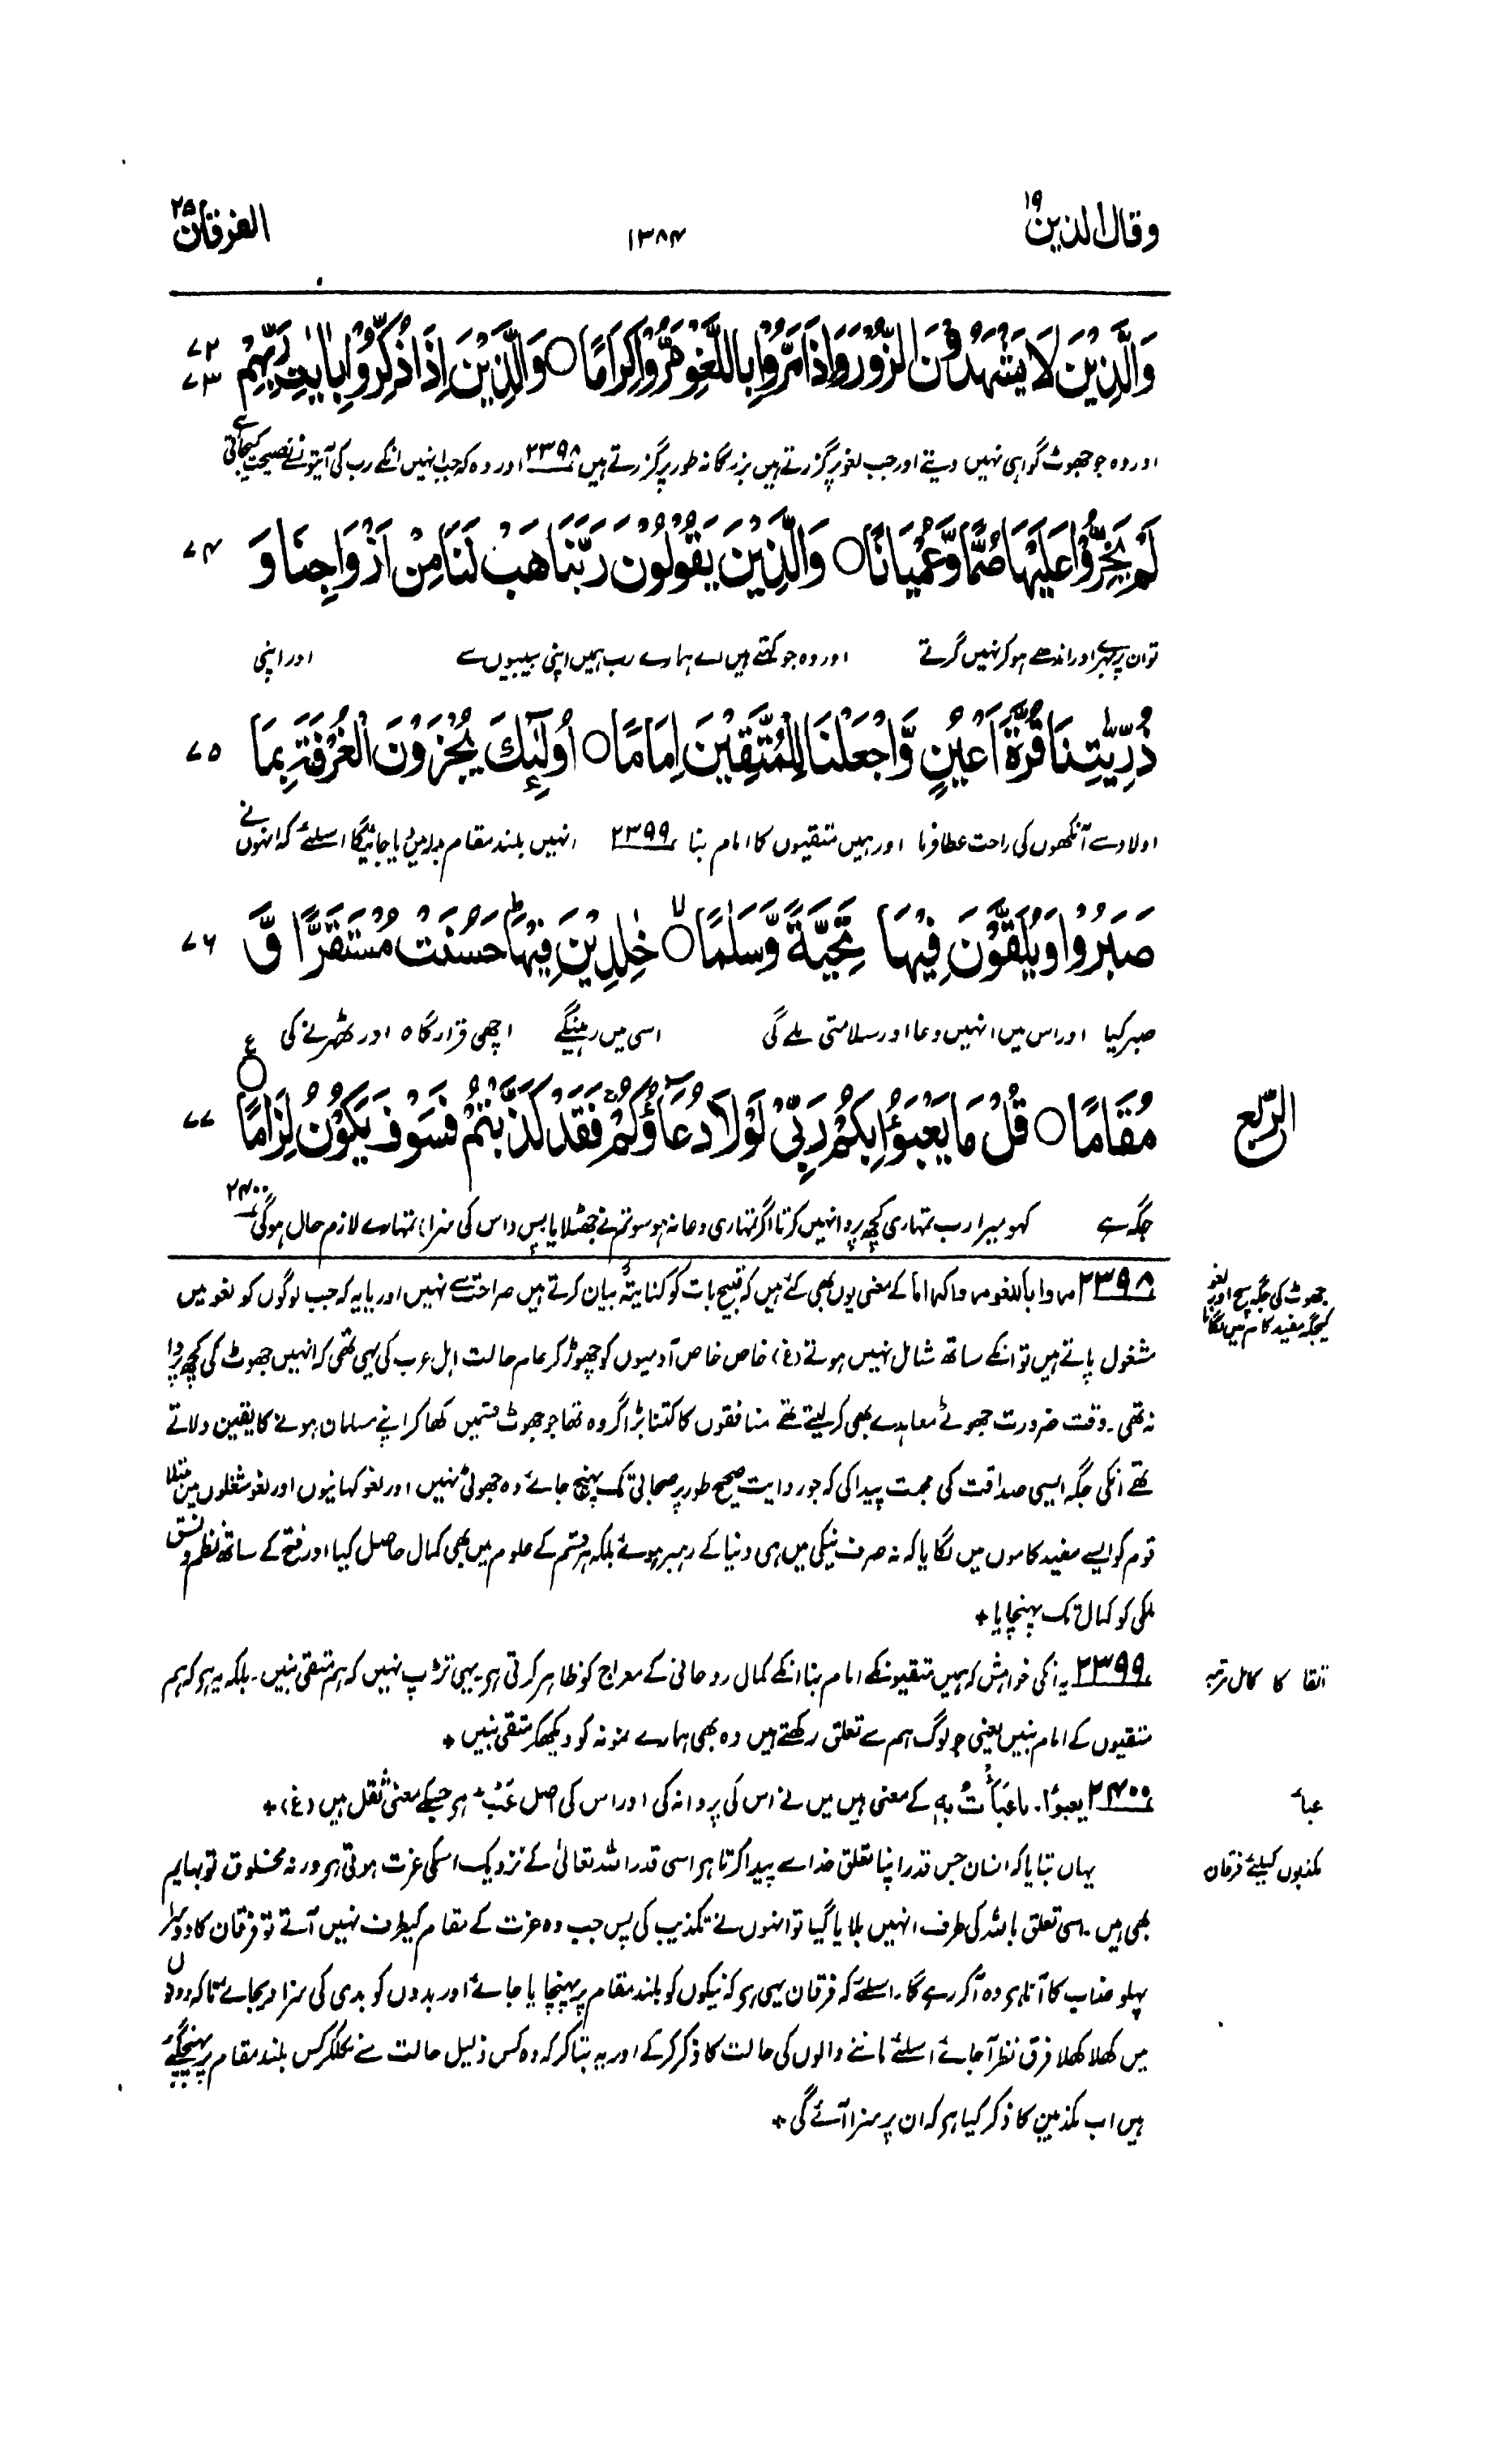 وقال الذین ۱۹
۱۳۸۴
الفرقان ۲۵
وَالَّذِيْنَ لَا يَشْهَدُوْنَ الزُّوْرَ وَاِذَا مَرُّوْا بِاللَّغْوِ مَرُّوْا كِرَامًا ○ وَالَّذِيْنَ اِذَا ذُكِّرُوْا بِاٰيٰتِ رَبِّهِمْ
۷۲
۷۳
اور وہ جو جھوٹ گواہی نہیں دیتے اور جب لغو پر گزرتے ہیں بزرگانہ طور پر گزرتے ہیں ۲۳۹۸ اور وہ کہ جب انہیں انکے رب کی آیتوں سے نصیحت کیجاتی ہے
لَمْ يَخِرُّوْا عَلَيْهَا صُمًّا وَّعُمْيَانًا ○ وَالَّذِيْنَ يَقُوْلُوْنَ رَبَّنَا هَبْ لَنَا مِنْ اَزْوَاجِنَا وَ
۷۴
تو ان پر بہرے اور اندھے ہو کر نہیں گرتے اور وہ جو کہتے ہیں اے ہمارے رب ہمیں اپنی بیبیوں سے اور اپنی
ذُرِّيّٰتِنَا قُرَّةَ اَعْيُنٍ وَّاجْعَلْنَا لِلْمُتَّقِيْنَ اِمَامًا ○ اُولٰٓئِكَ يُجْزَوْنَ الْغُرْفَةَ بِمَا
۷۵
اولاد سے آنکھوں کی راحت عطا فرما اور ہمیں متقیوں کا امام بنا ۲۳۹۹ انہیں بلند مقام بدلہ میں دیا جائیگا اسلئے کہ انہوں نے
صَبَرُوْا وَيُلَقَّوْنَ فِيْهَا تَحِيَّةً وَّسَلٰمًا ○ خٰلِدِيْنَ فِيْهَا حَسُنَتْ مُسْتَقَرًّا وَّ
۷۶
صبر کیا اور اس میں انہیں دعا اور سلامتی ملے گی اسی میں رہینگے اچھی قرار گاہ اور ٹھہرنے کی
مُقَامًا ○ قُلْ مَا يَعْبَؤُا بِكُمْ رَبِّيْ لَوْلَا دُعَآؤُكُمْ فَقَدْ كَذَّبْتُمْ فَسَوْفَ يَكُوْنُ لِزَامًا ○ ع
۷۷
الرّبع
جگہ ہے کہو میرا رب تمہاری کچھ پروا نہیں کرتا اگر تمہاری دعا نہ ہو سو تم نے جھٹلایا پس (اس کی سزا) تمہارے لازم حال ہوگی ۲۴۰۰
۲۳۹۸ مروا باللغو مروا کراما کے معنی یوں بھی کئے ہیں کہ قبیح بات کو کنایتہً بیان کرتے ہیں صراحت سے نہیں اور یا یہ کہ جب لوگوں کو لغو میں
جھوٹ کی جگہ سچ اور لغو
کیجگہ مفید کام میں لگانا
مشغول پاتے ہیں تو انکے ساتھ شامل نہیں ہوتے (غ) خاص خاص آدمیوں کو چھوڑ کر عام حالت اہل عرب کی یہی تھی کہ انہیں جھوٹ کی کچھ پروا
نہ تھی۔ وقت ضرورت جھوٹے معاہدے بھی کر لیتے تھے منافقوں کا کتنا بڑا گروہ تھا جو جھوٹ قسمیں کھا کر اپنے مسلمان ہونے کا یقین دلاتے
تھے انکی جگہ ایسی صداقت کی محبت پیدا کی کہ جو روایت صحیح طور پر صحابی تک پہنچ جائے وہ جھوٹی نہیں اور لغو کہانیوں اور لغو شغلوں میں مبتلا
قوم کو ایسے مفید کاموں میں لگایا کہ نہ صرف نیکی میں ہی دنیا کے رہبر ہوئے بلکہ ہر قسم کے علوم میں بھی کمال حاصل کیا اور فتح کے ساتھ نظم و نسق
ملکی کو کمال تک پہنچایا +
۲۳۹۹ یہ انکی خواہش کہ ہمیں متقیونکے امام بنا انکے کمال روحانی کے معراج کو ظاہر کرتی ہو یہی تڑپ نہیں کہ ہم متقی بنیں۔ بلکہ یہ ہو کہ ہم
اتقا کا کامل مرتبہ
متقیوں کے امام بنیں یعنی جو لوگ ہم سے تعلق رکھتے ہیں وہ بھی ہمارے نمونہ کو دیکھکر متقی بنیں +
۲۴۰۰ یعبؤا۔ ما عَبَأْتُ بِهٖ کے معنی ہیں میں نے اس کی پروا نہ کی اور اس کی اصل عَبْءٌ ہو جسکے معنی ثقل ہیں (غ) +
عبأ
یہاں بتایا کہ انسان جس قدر اپنا تعلق خدا سے پیدا کرتا ہو اسی قدر اللہ تعالیٰ کے نزدیک اسکی عزت ہوتی ہو ورنہ مخلوق تو بہایم
مکذبوں کیلئے فرقان
بھی ہیں۔ اسی تعلق باللہ کی طرف انہیں بلایا گیا تو انہوں نے تکذیب کی پس جب وہ عزت کے مقام کیطرف نہیں آتے تو فرقان کا دوسرا
پہلو عذاب کا آنا ہو وہ آکر رہے گا۔ اسلئے کہ فرقان یہی ہو کہ نیکوں کو بلند مقام پر پہنچایا جائے اور بدوں کو بدی کی سزا دیجائے تاکہ دونوں
میں کھلا کھلا فرق نظر آجائے اسلئے ماننے والوں کی حالت کا ذکر کر کے اور یہ بتا کر کہ وہ کس ذلیل حالت سے نکلکر کس بلند مقام پر پہنچ گئے
ہیں اب مکذبین کا ذکر کیا ہو کہ ان پر سزا آئے گی +